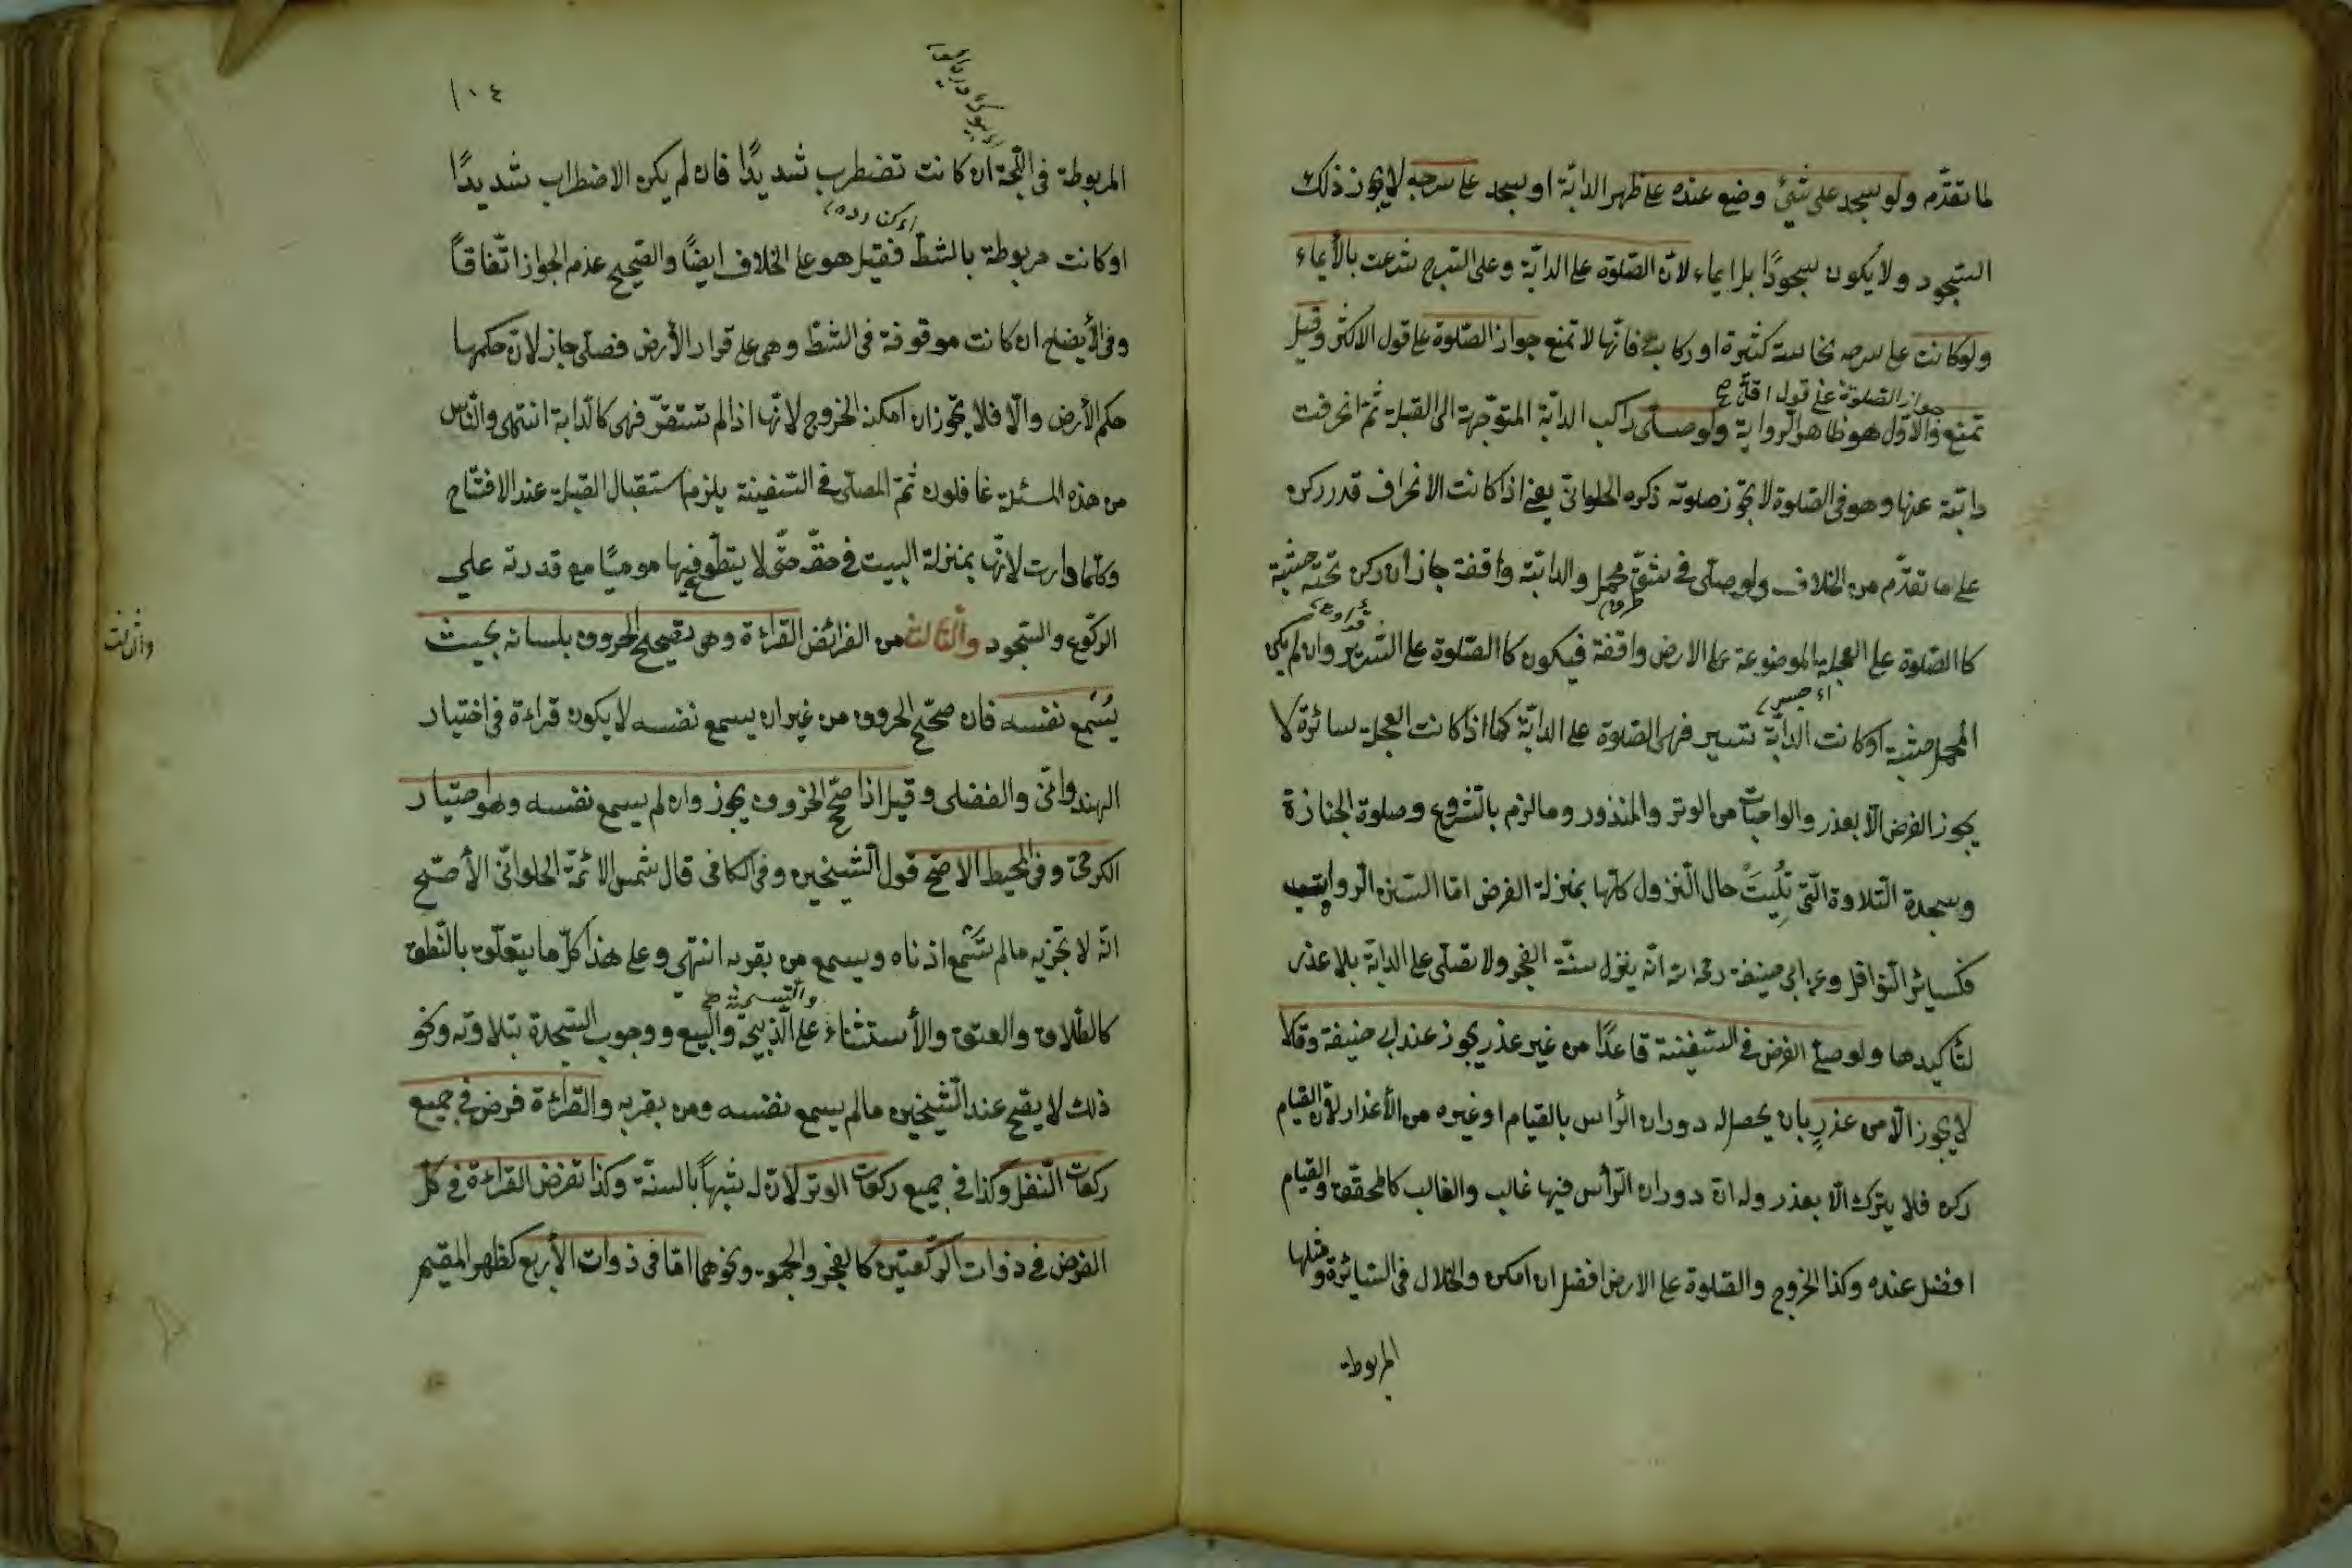 لما تقدّم ولو سجد على شئ وضع عنده على ظهر الدابّة او سجد على سرجه لا يجوز ذلك
السّجود ولا يكون سجودًا بل ايماء لانّ الصّلوة على الدابّة وعلى السّرج شرعت بالأيماء
ولو كانت على سرجه نجاسة كثيرة او ركابيه فانّها لا تمنع جواز الصّلوة على قول الاكثر وقيل
جواز الصّلوة على قول اقلّ صح
تمنع والاوّل هو ظاهر الرواية ولو صلّى راكب الدابّة المتوّجهة الى القبلة ثمّ انحرفت
دابّته عنها وهو فى الصّلوة لا يجوّز صلوته ذكره الحلوانىّ يعنى اذا كانت الانحراف قدر ركن
على ما تقدّم من الخلاف ولو صلّى فى شقّ محمل والدابّة واقفة جاز ان ركن تحته خشبة
كالصّلوة على العجلة الموضوعة على الارض واقفة فيكون كالصّلوة على السّرير وان لم يكن
المحمل خشبة او كانت الدابّة تسير فهى الصّلوة على الدابّة كما اذا كانت العجلة سائرة لا
يجوز الفرض الّا بعذر والواجبات من الوتر والمنذور وما لزم بالشّروع وصلوة الجنازة
وسجدة التّلاوة الّتى تليت حال النّزول كلّها بمنزلة الفرض امّا السّنن الرواتب
فكسائر النّوافل وعن ابى حنيفة رحمه الله انّه ينزل سنّة الفجر ولا تصلّى على الدابّة بلا عذر
لتأكيدها ولو صلّى الفرض فى السّفينة قاعدًا من غير عذر يجوز عند ابى حنيفة وقالا
لا يجوز الّا من عذرٍ بان يحصل له دوران الرّأس بالقيام او غيره من الأعذار لانّ القيام
ركن فلا يترك الّا بعذر وله انّ دوران الرّأس فيها غالب والغالب كالمحقّق والقيام
افضل عنده وكذا الخروج والصّلوة على الارض افضل ان امكن والخلاف فى السّائرة ومثلها
المربوطة
١٠٤
المربوطة فى اللّجة ان كانت تضطرب شديدًا فان لم يكن الاضطراب شديدًا
او كانت مربوطة بالشّطّ فقيل هو على الخلاف ايضًا والصّحيح عدم الجواز اتّفاقًا
وفى الأيضاح ان كانت موقوفة فى الشّطّ وهى على قرار الأرض فصلّى جاز لانّ حكمها
حكم الأرض والّا فلا يجوّز ان امكنه الخروج لانّها اذا لم تستقرّ فهى كالدّابة انتهى والنّاس
من هذه المسئلة غافلون ثمّ المصلّى فى السّفينة يلزم استقبال القبلة عند الافتتاح
وكلّما دارت لانّها بمنزلة البيت فى حقّه حتّى لا يتطوّع فيها موميًا مع قدرته على
الركوع والسّجود والثّالثة من الفرائض القراءة وهى تصحيح الحروف بلسانه بحيث
يُسْمع نفسه فان صحّح الحروف من غير ان يسمع نفسه لا يكون قراءة فى اختيار
الهندوانىّ والفضلى وقيل اذا صحّح الحروف يجوز وان لم يسمع نفسه وهو اختيار
الكرخىّ وفى المحيط الاصّح قول الشّيخين وفى الكافى قال شمس الائمّة الحلوانىّ الأصّح
انّه لا تجزيه ما لم تسّمع اذناه ويسمع من بقربه انتهى وعلى هذا كلّ ما يتعلّق بالنّطق
والتّسمية صح
كالطّلاق والعتق والأستثناء على الذّبيحة والبيع ووجوب السّجدة بتلاوته ونحو
ذلك لا يصّح عند الشّيخين ما لم يسمع نفسه ومن بقربه والقراءة فرض فى جميع
ركعات النّفل وكذا فى جميع ركعات الوتر لانّ له شبهاً بالسنّة وكذا تفرض القراءة فى كلّ
الفرض فى ذوات الرّكعتين كالفجر والجمعة ونحوهما امّا فى ذوات الأربع كظهر المقيم